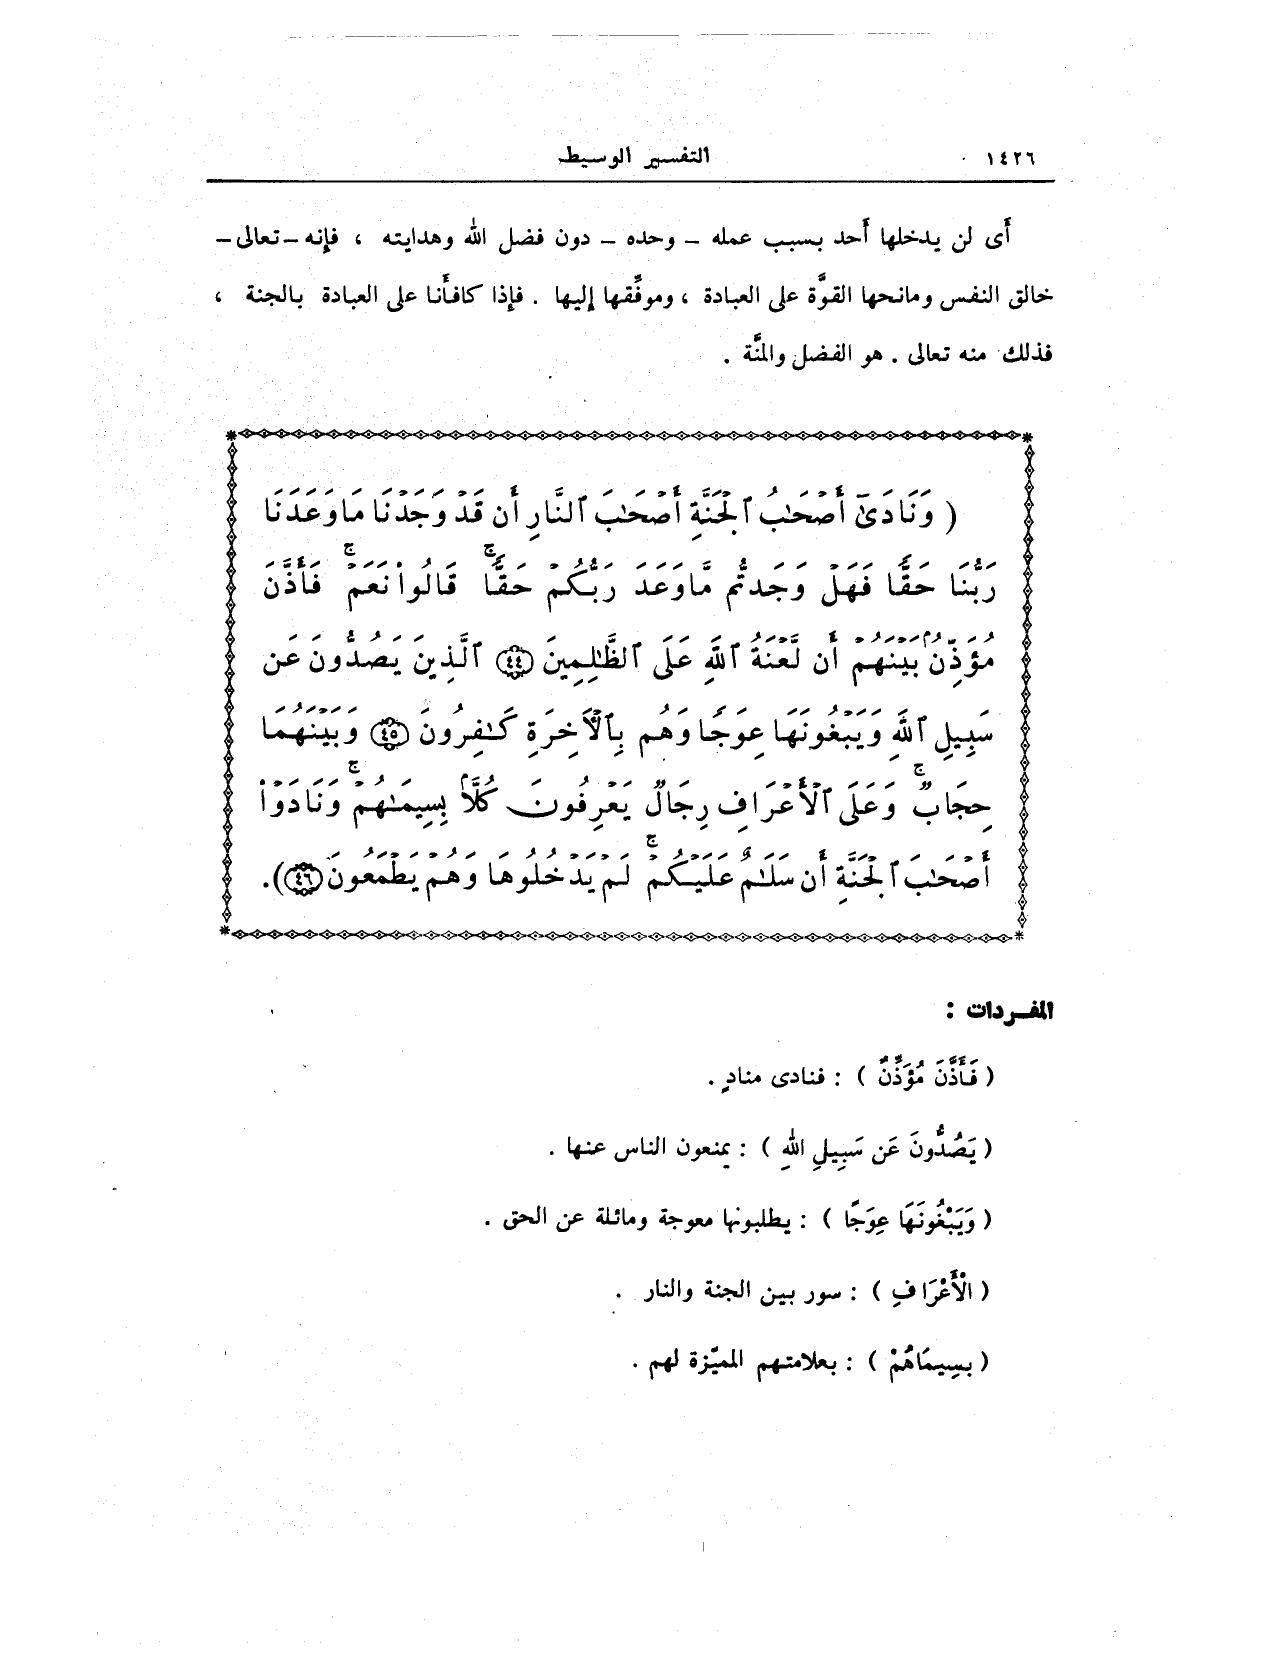 ١٤٢٦ التفسير الوسيط
أى لن يدخلها أحد بسبب عمله – وحده – دون فضل الله وهدايته ، فإنه – تعالى –
خالق النفس ومانحها القوَّة على العبادة ، وموفِّقها إليها . فإذا كافأنا على العبادة بالجنة ،
فذلك منه تعالى . هو الفضل والمنَّة .
( وَنَادَىٰٓ أَصْحَٰبُ ٱلْجَنَّةِ أَصْحَٰبَ ٱلنَّارِ أَن قَدْ وَجَدْنَا مَا وَعَدَنَا
رَبُّنَا حَقًّا فَهَلْ وَجَدتُّم مَّا وَعَدَ رَبُّكُمْ حَقًّا ۖ قَالُوا۟ نَعَمْ ۚ فَأَذَّنَ
مُؤَذِّنٌۢ بَيْنَهُمْ أَن لَّعْنَةُ ٱللَّهِ عَلَى ٱلظَّٰلِمِينَ ﴿٤٤﴾ ٱلَّذِينَ يَصُدُّونَ عَن
سَبِيلِ ٱللَّهِ وَيَبْغُونَهَا عِوَجًا وَهُم بِٱلْأَخِرَةِ كَٰفِرُونَ ﴿٤٥﴾ وَبَيْنَهُمَا
حِجَابٌ ۚ وَعَلَى ٱلْأَعْرَافِ رِجَالٌ يَعْرِفُونَ كُلًّۢا بِسِيمَىٰهُمْ ۚ وَنَادَوْا۟
أَصْحَٰبَ ٱلْجَنَّةِ أَن سَلَٰمٌ عَلَيْكُمْ ۚ لَمْ يَدْخُلُوهَا وَهُمْ يَطْمَعُونَ ﴿٤٦﴾ ) .
المفـردات :
( فَأَذَّنَ مُؤَذِّنٌ ) : فنادى منادٍ .
( يَصُدُّونَ عَن سَبِيلِ اللهِ ) : يمنعون الناس عنها .
( وَيَبْغُونَهَا عِوَجًا ) : يطلبونها معوجة ومائلة عن الحق .
( الْأَعْرَافِ ) : سور بين الجنة والنار .
( بِسِيمَاهُمْ ) : بعلامتهم المميّزة لهم .